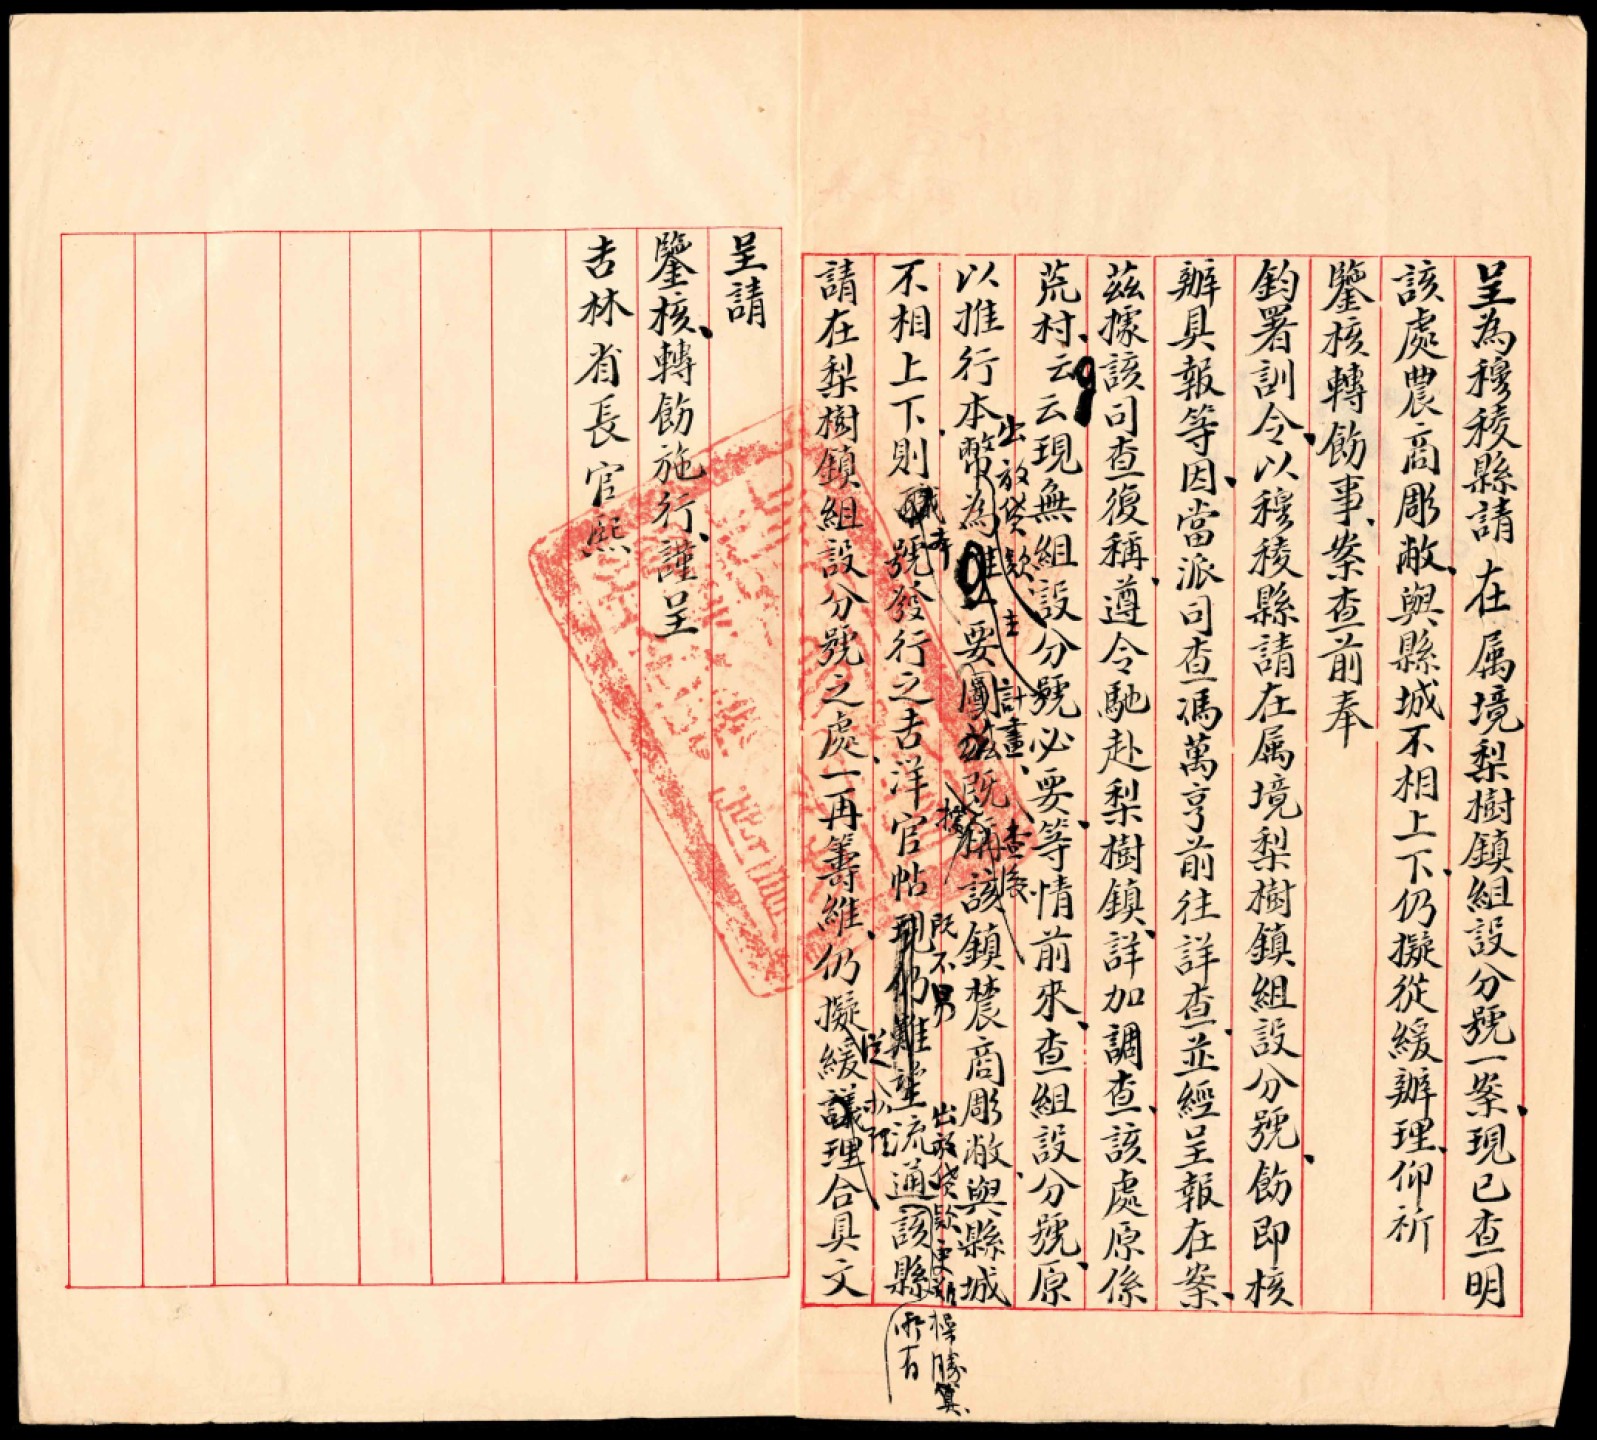 呈為穆稜縣請在属境梨樹鎮組設分號一案、現已查明
該處農商彫敝、與縣城不相上下、仍擬從緩辦理、仰祈
鑒核轉飭事、案查前奉
鈞署訓令、以穆稜縣請在属境梨樹鎮組設分號、飭即核
辦具報等因、當派司查馮萬亨前往詳查、並經呈報在案、
茲據該司查復稱、遵令馳赴梨樹鎮、詳加調查、該處原係
荒村、云云現無組設分號必要、等情前來、查組設分號、原
出放貸款 主 計畫、查係
以推行本幣為 要 既稱該鎮農商彫敝、與縣城
據 既不易 出放貸款更 操勝算、
不相上下、則 號發行之吉洋官帖現仍難望流通、該縣
職 所有
請在梨樹鎮組設分號之處、一再籌維、仍擬緩議理合具文
從 办理
呈請
鑒核、轉飭施行、謹呈
吉林省長官熙